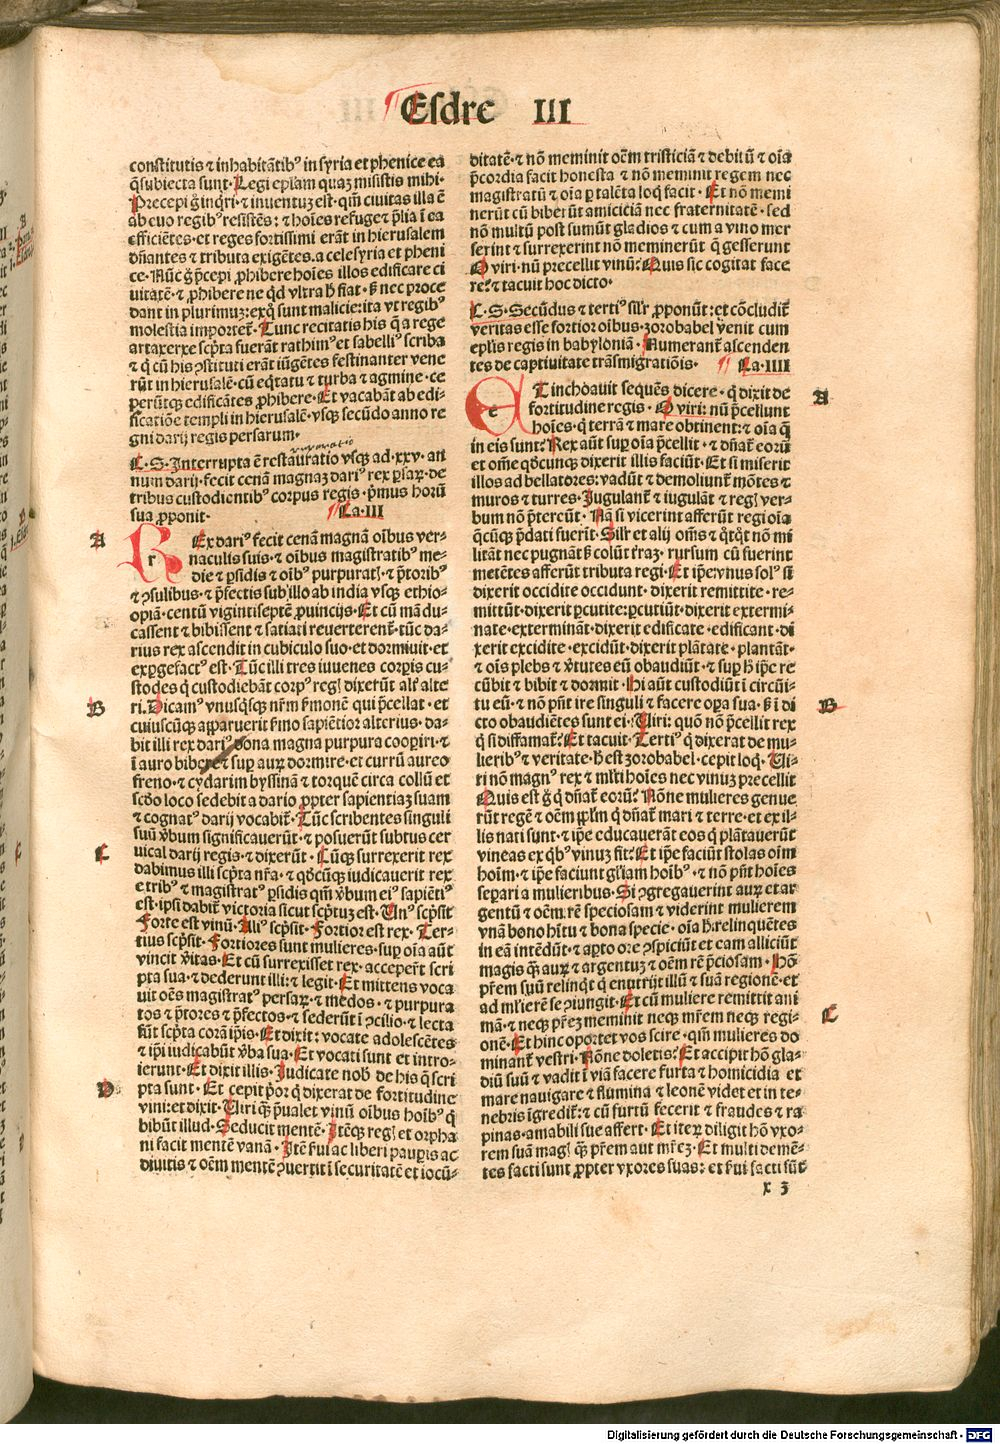 Esdre III
constitutis ⁊ inhabitātibꝰ in syria et phenice ea
q̄ subiecta sunt. Legi epłam quaꝫ misistis mihi.
Precepi g̊ inq̄ri. ⁊ inuentuꝫ est. qm̄ ciuitas illa ē
ab euo regibꝰ resistēs: ⁊ hoīes refuge ⁊ p̄lia ī ea
efficiētes. et reges fortissimi erāt in hierusalem
dn̄antes ⁊ tributa exigētes. a celesyria et pheni
ce. Nūc g̊ p̄cepi ꝓhibere hoīes illos edificare ci
uitatē. ⁊ ꝓhibere ne qd̄ vltra h̄ fiat. ꝫ nec proce
dant in plurimuꝫ: exq̄ sunt malicie: ita vt regibꝰ
molestia importet̄. Tunc recitatis his q̄ a rege
artaxerxe scp̄ta fuerāt rathimꝰ et sabelliꝰ scriba
⁊ q̄ cū his ꝯstituti erāt iūgētes festinanter vene
rūt in hierusalē. cū eq̄tatu ⁊ turba ⁊ agmine. ce
perūtqꝫ edificātes ꝓhibere. Et vacabāt ab edi-
ficatiōe templi in hierusalē. vsqꝫ secūdo anno re
gni darij regis persarum.
C. S. Interrupta ē restauratio vsqꝫ ad. xxv. an
num darij. fecit cenā magnaꝫ dariꝰ rex ꝑsaꝝ. de
tribus custodientibꝰ corpus regis. p̄mus horū
sua ꝓponit. Ca. III
A
r
Ex dariꝰ fecit cenā magnā oībus ver-
naculis suis. ⁊ oībus magistratibꝰ me-
die ⁊ ꝑsidis ⁊ oībꝰ purpuratꝭ. ⁊ p̄toribꝰ
⁊ ꝯsulibus. ⁊ p̄fectis sub illo ab india vsqꝫ ethio-
opiā. centū vigintiseptē ꝓuincijs. Et cū mā du-
cassent ⁊ bibissent ⁊ satiati reuerterent̄. tūc da-
rius rex ascendit in cubiculo suo. et dormiuit. et
exꝑgefactꝰ est. Tūc illi tres iuuenes corꝑis cu-
stodes q̄ custodiebāt corpꝰ regꝭ dixerūt alt̄ alte
B
ri. Dicamꝰ vnusq̄sqꝫ nr̄m ẜmonē qui p̄cellat. et
cuiuscūqꝫ apparuerit ẜmo sapiētior alterius. da-
bit illi rex dariꝰ dona magna purpura cooꝑiri. ⁊
ī auro bibere ⁊ suꝑ auꝝ dormire. et currū aureo
freno. ⁊ cydarim byssinā ⁊ torquē circa collū et
scd̄o loco sedebit a dario ꝓpter sapientiaꝫ suam
⁊ cognatꝰ darij vocabit̄. Tūc scribentes singuli
suū v̄bum significauerūt. ⁊ posuerūt subtus cer
C
uical darij regis. ⁊ dixerūt. Cūqꝫ surrexerit rex
dabimus illi scp̄ta nr̄a. ⁊ qd̄cūqꝫ iudicauerit rex
e tribꝰ ⁊ magistratꝰ ꝑsidis qm̄ v̄bum eiꝰ sapiētiꝰ
est. ipsi dabit̄ victoria sicut scp̄tuꝫ est. Unꝰ scp̄sit
Forte est vinū. Aliꝰ scp̄sit. Fortior est rex. Ter-
tius scp̄sit. Fortiores sunt mulieres. suꝑ oīa aūt
vincit v̄itas. Et cū surrexisset rex. acceper̄t scri
pta sua. ⁊ dederunt illi: ⁊ legit. Et mittens voca
uit oēs magistratꝰ persaꝝ. ⁊ medos. ⁊ purpura
tos ⁊ p̄tores ⁊ p̄fectos. ⁊ sederūt ī ꝯcilio. ⁊ lecta
sūt scp̄ta corā ip̄is. Et dixit: vocate adolescētes
⁊ ip̄i iudicabūt v̄ba sua. Et vocati sunt et intro-
ierunt. Et dixit illis. Iudicate nob̄ de his q̄ scri
D
pta sunt. Et cepit p̄or q̄ dixerat de fortitudine
vini: et dixit. Uiri qꝫ p̄ualet vinū oībus hoībꝰ q̄
bibūt illud. Seducit mentē. Itēqꝫ regꝭ et orpha
ni facit mentē vanā. Itē ẜui ac liberi pauꝑis ac
diuitis ⁊ oēm mentē ꝯuertit ī securitatē et iocū-
ditatē. ⁊ nō meminit oēm tristiciā ⁊ debitū ⁊ oīa
p̄cordia facit honesta ⁊ nō meminit regem nec
magistratū ⁊ oīa ꝑ talēta loq̄ facit. Et nō memi
nerūt cū biberūt amiciciā nec fraternitatē. sed
nō multū post sumūt gladios ⁊ cum a vino mer
serint ⁊ surrexerint nō meminerūt q̄ gesserunt
O viri. nū precellit vinū? Quis sic cogitat face
re? ⁊ tacuit hoc dicto.
C. S. Secūdus ⁊ tertiꝰ sil̄r ꝓponūt: et cōcludit̄
veritas esse fortior oībus. zorobabel v̄enit cum
epl̄is regis in babyloniā. Numerant̄ ascenden
tes de captiuitate trāsmigratiōis. Ca. IIII
A
e
T inchoauit sequēs dicere. q̄ dixit de
fortitudine regis. O viri: nū p̄cellunt
hoīes. q̄ terrā ⁊ mare obtinent: ⁊ oīa q̄
in eis sunt? Rex aūt suꝑ oīa p̄cellit. ⁊ dn̄at̄ eorū
et om̄e qd̄cunqꝫ dixerit illis faciūt. Et si miserit
illos ad bellatores: vadūt ⁊ demoliunt̄ mōtes ⁊
muros ⁊ turres. Jugulant̄ ⁊ iugulāt ⁊ regꝭ ver-
bum nō p̄tercūt. Nā si vicerint afferūt regi oīa
q̄cūqꝫ p̄dati fuerit. Sil̄r et alij om̄s ⁊ q̄tq̄t nō mi
litāt nec pugnāt ꝫ colūt tr̄aꝫ. rursum cū fuerint
metētes afferūt tributa regi. Et ip̄e: vnus solꝰ si
dixerit occidite occidunt. dixerit remittite. re-
mittūt. dixerit ꝑcutite: ꝑcutiūt. dixerit extermi-
nate. extermināt. dixerit edificate. edificant. di
xerit excidite. excidūt. dixerit plātate. plantāt.
⁊ oīs plebs ⁊ v̄tures eū obaudiūt. ⁊ suꝑ h̄ ip̄e re
cūbit ⁊ bibit ⁊ dormit. Hi aūt custodiūt ī circūi-
B
tu eū. ⁊ nō pn̄t ire singuli ⁊ facere oꝑa sua. ꝫ ī di
cto obaudiētes sunt ei. Uiri: quō nō p̄cellit rex
q̄ si diffamat̄? Et tacuit. Tertiꝰ q̄ dixerat de mu-
lieribꝰ ⁊ veritate. h̄ est zorobabel. cepit loq̄. Ui-
ri nō magnꝰ rex ⁊ ml̄ti hoīes nec vinuꝫ precellit
Quis est g̊ q̄ dn̄at̄ eorū? Nōne mulieres genue
rūt regē ⁊ oēm ppl̄m q̄ dn̄at̄ mari ⁊ terre. et ex il-
lis nati sunt. ⁊ ip̄e educauerāt eos q̄ plātauerūt
vineas ex qbꝰ vinuꝫ fit? Et ip̄e faciūt stolas oīm
hoīm. ⁊ ip̄e faciunt gl̄iam hoībꝰ. ⁊ nō pn̄t hoīes
seꝑari a mulieribus. Si ꝯgregauerint auꝝ et ar
gentū ⁊ oēm rē speciosam ⁊ viderint mulierem
vnā bono hītu ⁊ bona specie. oīa h̄ relinquētes
in eā intēdūt. ⁊ aꝑto ore ꝯspiciūt et eam alliciūt
magis qꝫ auꝝ ⁊ argentuꝫ ⁊ oēm rē p̄ciosam. Hō
pr̄em suū relinqt̄ q̄ enutrijt illū ⁊ suā regionē. et
C
ad ml̄ierē se ꝯiungit. Et cū muliere remittit ani
mā. ⁊ neqꝫ pr̄eꝫ meminit neqꝫ mr̄em neqꝫ regi-
onē. Et hinc oportet vos scire. qm̄ mulieres do
minant̄ vestri. Nōne doletis? Et accipit hō gla-
diū suū ⁊ vadit ī viā facere furta ⁊ homicidia et
mare nauigare ⁊ flumina ⁊ leonē videt et in te-
nebris īgredit̄: ⁊ cū furtū fecerit ⁊ fraudes ⁊ ra
pinas. amabili sue affert. Et iteꝝ diligit hō vxo-
rem suā magꝭ qꝫ pr̄em aut mr̄eꝫ. Et multi demē-
tes facti sunt ꝓpter vxores suas: et ẜui facti sūt
x 3
Digitalisierung gefördert durch die Deutsche Forschungsgemeinschaft - DFG